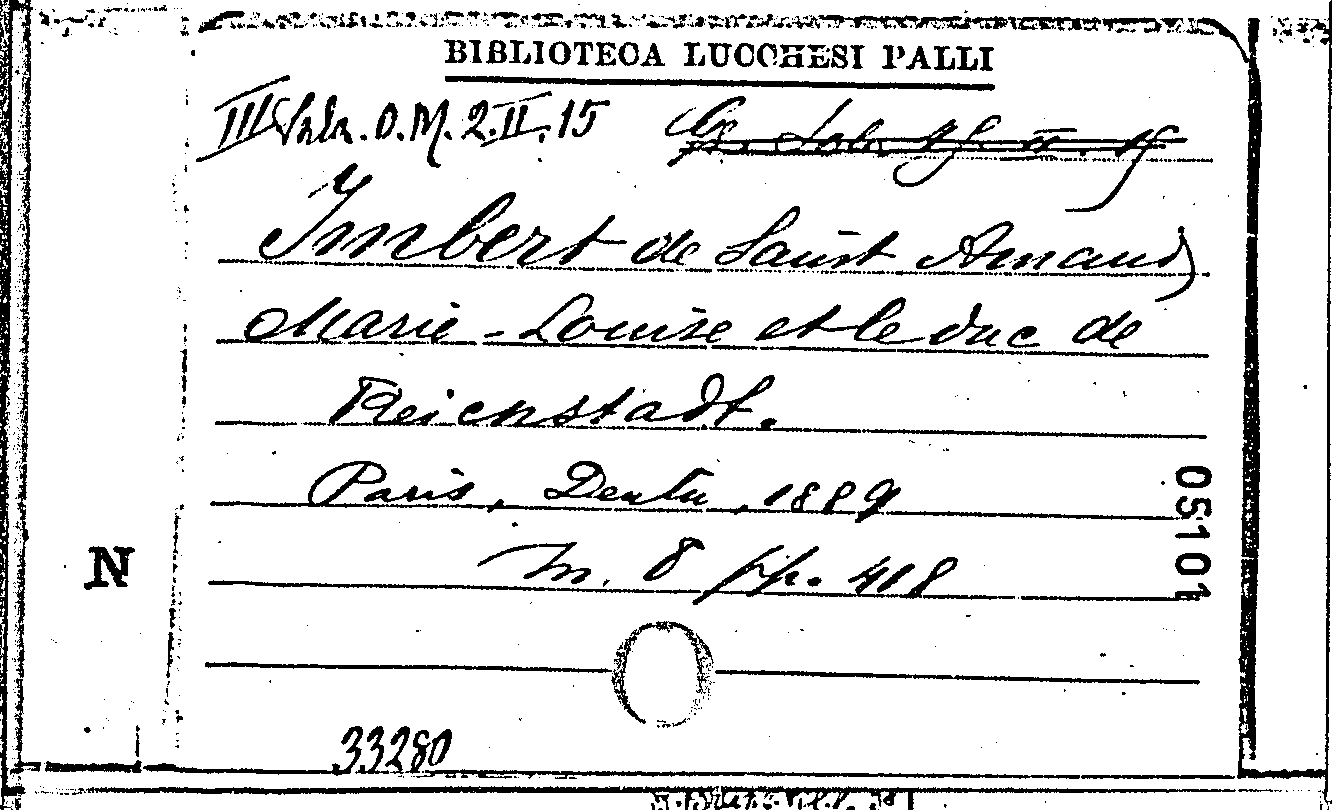 BIBLIOTECA LUCCHESI PALLI
III Sala. O.M. 2.II.15
Imbert de Saint Amand
Marie-Louise et le duc de
Reichstadt.
Paris, Dentu, 1889
In. 8 pp. 418
05101
N
33280